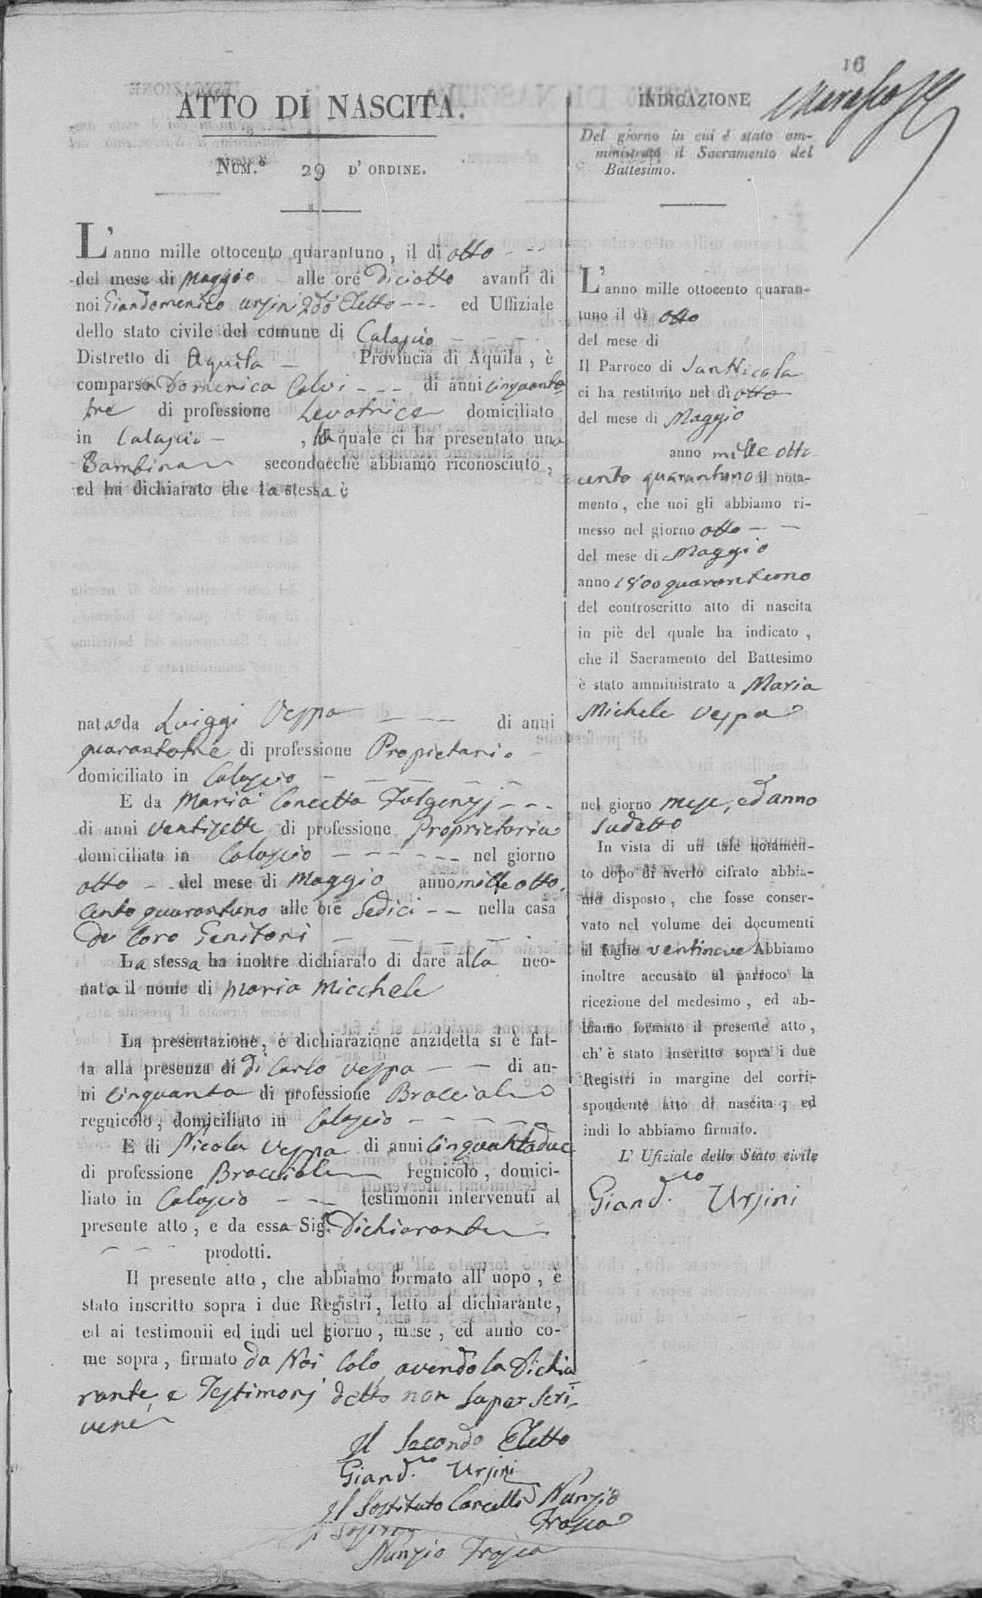 16
ATTO DI NASCITA.
NUM.º 29 D' ORDINE.
L'anno mille ottocento quarantuno, il dì otto
del mese di Maggio alle ore diciotto avanti di
noi Giandomenico Ursini 2do Eletto ed Uffiziale
dello stato civile del comune di Calascio
Distretto di Aquila Provincia di Aquila, è
comparsa Domenica Calvi di anni cinquanta
tre di professione Levatrice domiciliato
in Calascio, la quale ci ha presentato una
Bambina secondocchè abbiamo riconosciuto,
ed ha dichiarato che la stessa è
nata da Luiggi Vespa di anni
quarantotrè di professione Proprietario
domiciliato in Calascio
E da Maria Concetta Fulgenzj
di anni ventisette di professione Proprietaria
domiciliata in Calascio nel giorno
otto del mese di Maggio anno mille otto
cento quarantuno alle ore Sedici nella casa
de loro Genitori
La stessa ha inoltre dichiarato di dare alla neo-
nata il nome di Maria Micchele
La presentazione, e dichiarazione anzidetta si è fat-
ta alla presenza di di Carlo Vespa di an-
ni cinquanta di professione Bracciale
regnicolo, domiciliato in Calascio
E di Nicola Vespa di anni cinquantadue
di professione Bracciale regnicolo, domici-
liato in Calascio testimonii intervenuti al
presente atto, e da essa Sig. Dichiarante
prodotti.
Il presente atto, che abbiamo formato all' uopo, è
stato inscritto sopra i due Registri, letto al dichiarante,
ed ai testimonii ed indi nel giorno, mese, ed anno co-
me sopra, firmato da Noi solo, avendo la Dichia
rante, e Testimonj detto non saper scri-
vere
Il Secondo Eletto
Giand.co Ursini
Il Sostituto Cancell.e Nunzio
Frasca
Nunzio Frasca
INDICAZIONE
Del giorno in cui è stato am-
ministrato il Sacramento del
Battesimo.
L'anno mille ottocento quaran-
tuno il dì otto
del mese di
Il Parroco di San Nicola
ci ha restituito nel dì otto
del mese di Maggio
anno mille otto
cento quarantuno il nota-
mento, che noi gli abbiamo ri-
messo nel giorno otto
del mese di Maggio
anno 1800 quarantuno
del controscritto atto di nascita
in piè del quale ha indicato,
che il Sacramento del Battesimo
è stato amministrato a Maria
Michele Vespa
nel giorno mese, ed anno
sudetto
In vista di un tale notamen-
to dopo di averlo cifrato abbia-
mo disposto, che fosse conser-
vato nel volume dei documenti
al foglio ventinove Abbiamo
inoltre accusato al parroco la
ricezione del medesimo, ed ab-
biamo formato il presente atto,
ch' è stato inscritto sopra i due
Registri in margine del corri-
spondente atto di nascita, ed
indi lo abbiamo firmato.
L' Ufiziale dello Stato civile
Giand.co Ursini